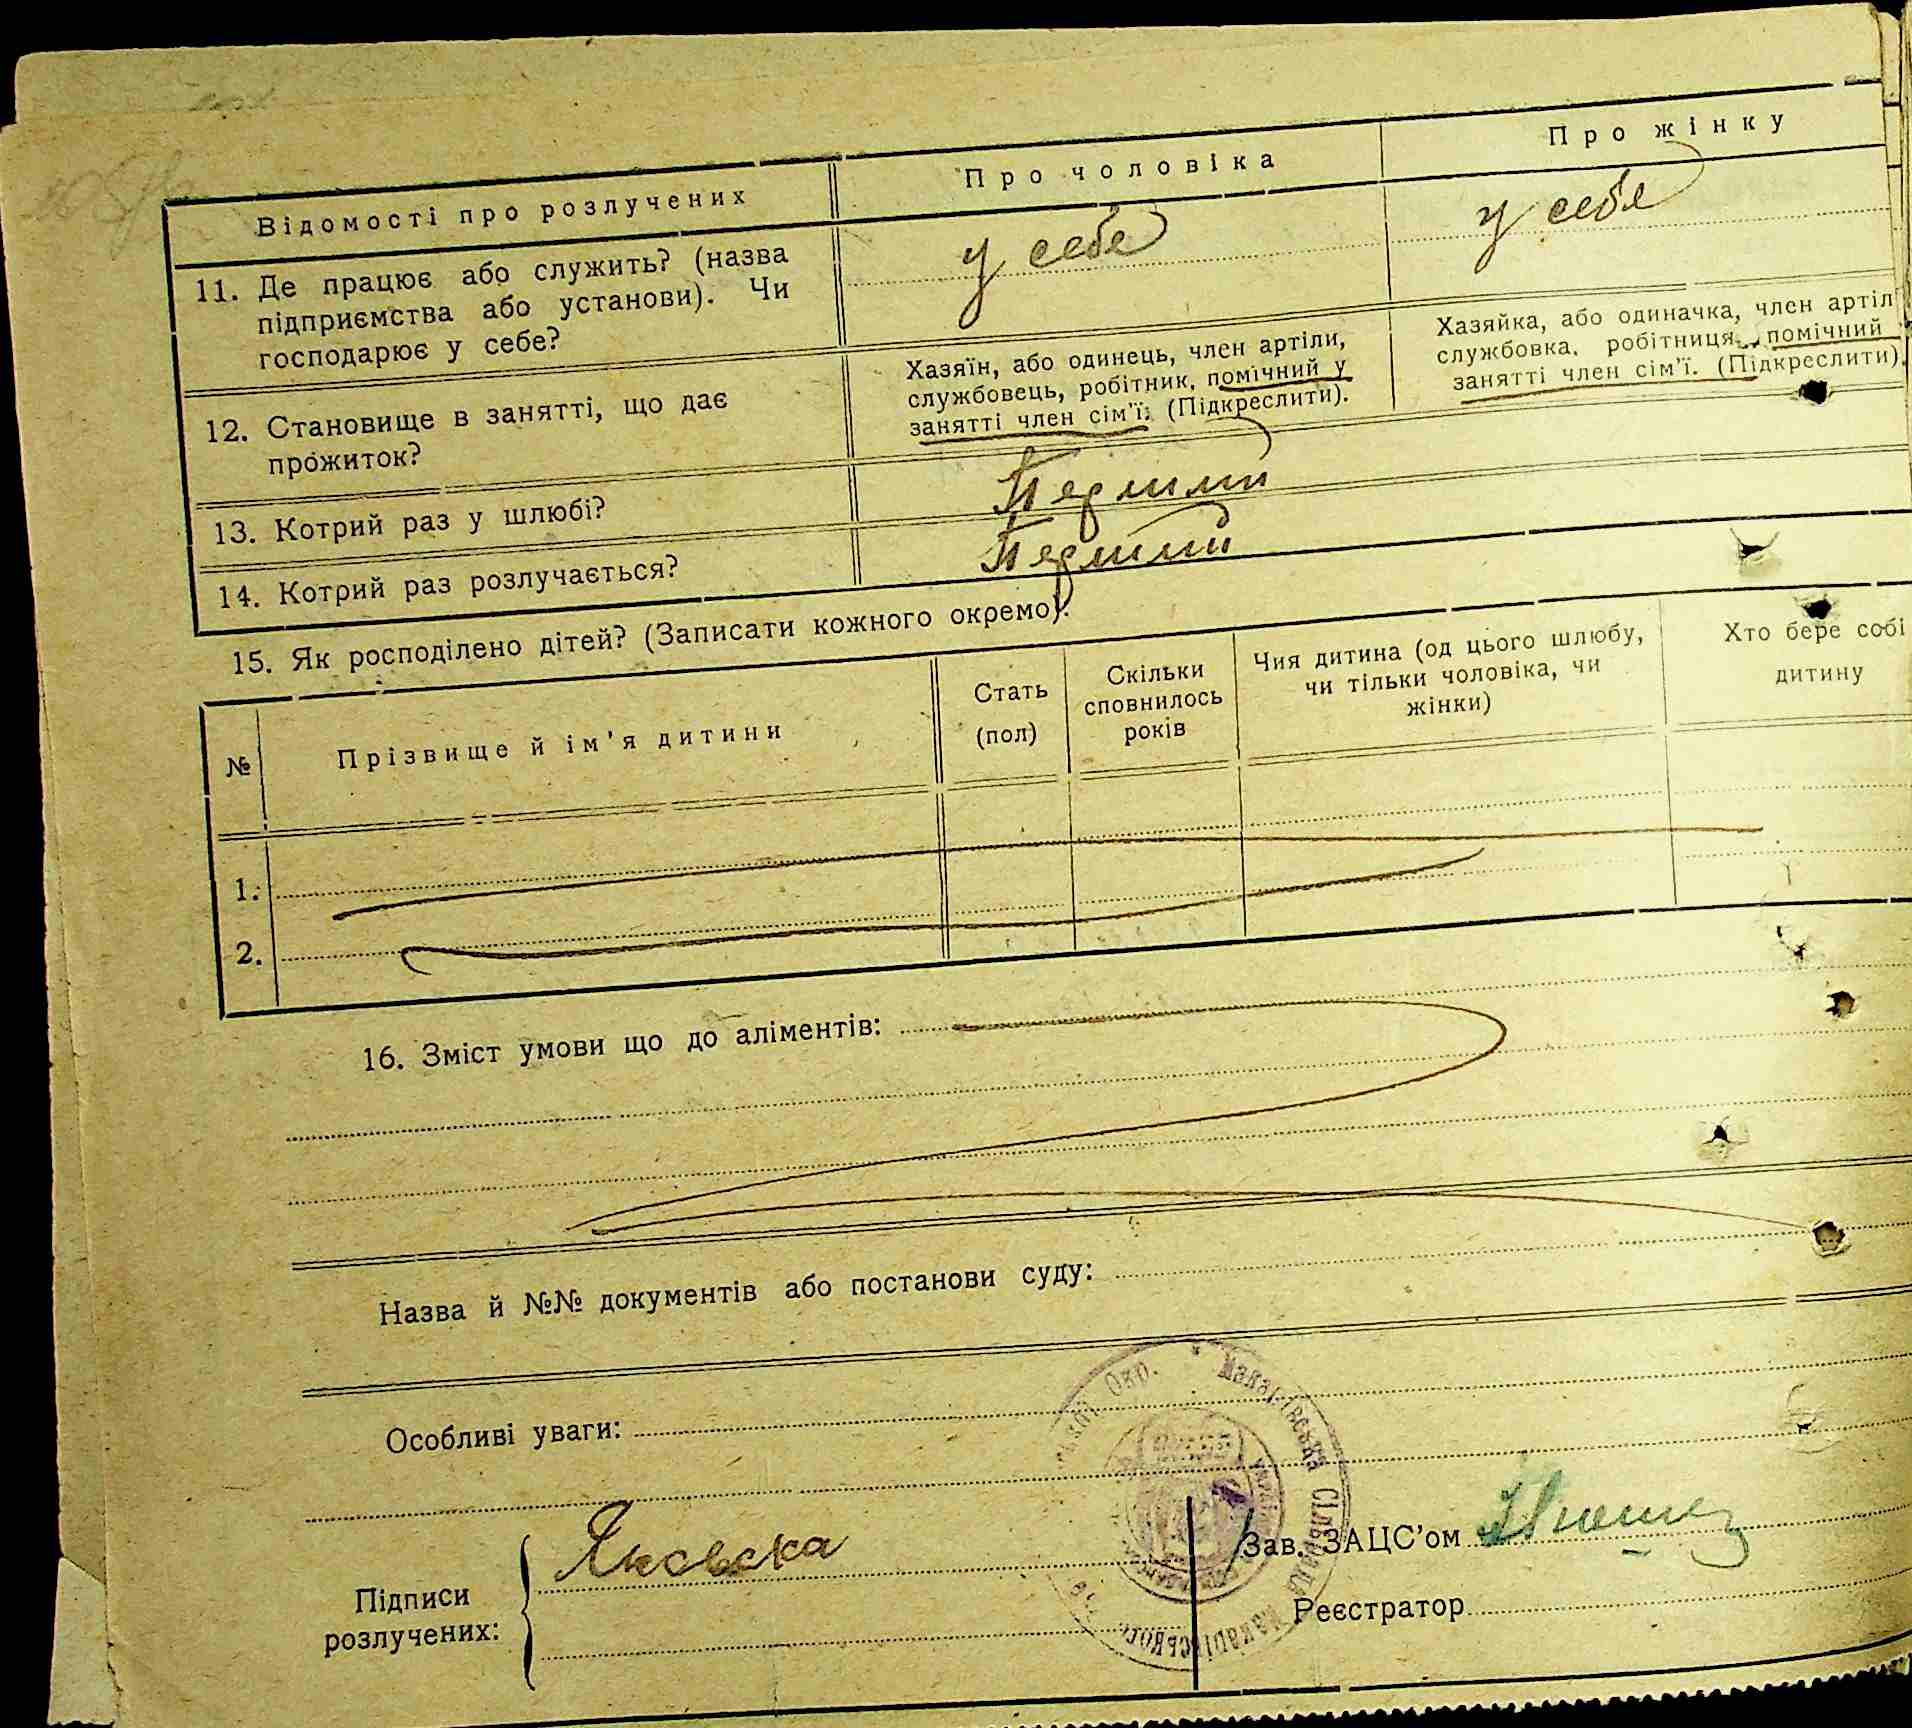 Відомості про розлучених
Про чоловіка
Про жінку
11. Де працює або служить? (назва
підприємства або установи). Чи
господарює у себе?
у себе
у себе
12. Становище в занятті, що дає
прожиток?
Хазяїн, або одинець, член артіли,
службовець, робітник, помічний у
занятті член сім'ї. (Підкреслити).
Хазяйка, або одиначка, член артіл
службовка, робітниця, помічний
занятті член сім'ї. (Підкреслити)
13. Котрий раз у шлюбі?
Перший
14. Котрий раз розлучається?
Перший
15. Як росподілено дітей? (Записати кожного окремо).
№
Прізвище й ім'я дитини
Стать
(пол)
Скільки
сповнилось
років
Чия дитина (од цього шлюбу,
чи тільки чоловіка, чи
жінки)
Хто бере собі
дитину
1.
2.
16. Зміст умови що до аліментів:
Назва й №№ документів або постанови суду:
Особливі уваги:
Окр. * Макарівська Сільська
Макарівського
Підписи
розлучених:
Яковска
Зав. ЗАЦС'ом
Реєстратор